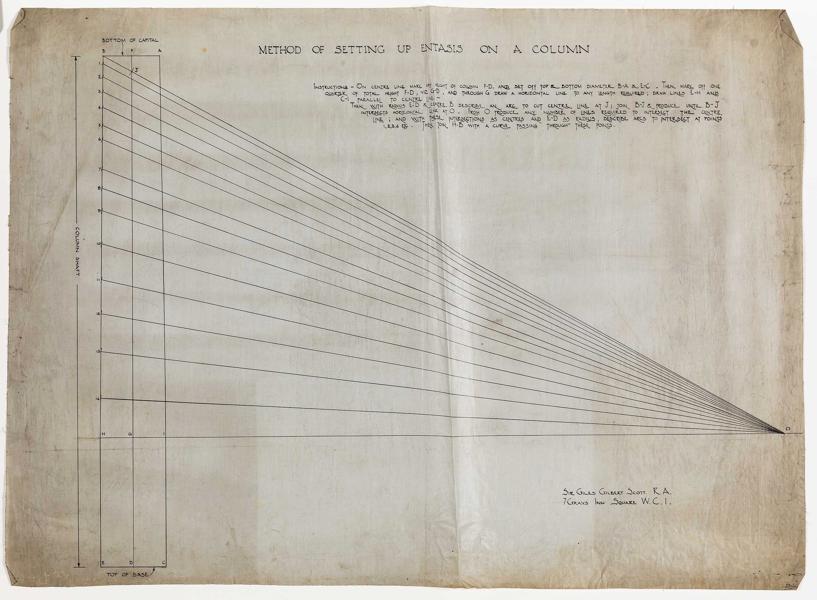 BOTTOM OF CAPITAL
B F A
METHOD OF SETTING UP ENTASIS ON A COLUMN
INSTRUCTIONS - ON CENTRE LINE MARK OFF HEIGHT OF COLUMN F-D, AND SET OFF TOP & BOTTOM DIAMETER B-A & E-C. THEN MARK OFF ONE
QUARTER OF TOTAL HEIGHT F-D, VIZ G-D, AND THROUGH G DRAW A HORIZONTAL LINE TO ANY LENGTH REQUIRED; DRAW LINES E-H AND
C-I PARALLEL TO CENTRE LINE -
THEN WITH RADIUS E-D & CENTRE B DESCRIBE AN ARC TO CUT CENTRE LINE AT J; JOIN B-J & PRODUCE UNTIL B-J
INTERSECTS HORIZONTAL LINE AT O. FROM O PRODUCE ANY NUMBER OF LINES REQUIRED TO INTERSECT THE CENTRE
LINE; AND WITH THESE INTERSECTIONS AS CENTRES AND E-D AS RADIUS, DESCRIBE ARCS TO INTERSECT AT POINTS
THEN JOIN H-B WITH A CURVE PASSING THROUGH THESE POINTS.
J
COLUMN SHAFT
H G I
O
SIR GILES GILBERT SCOTT. R.A.
7 GRAYS INN SQUARE W.C.1.
E D C
TOP OF BASE